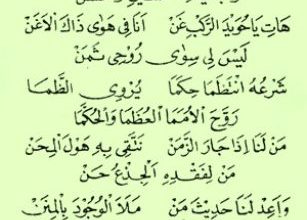 هَاتِ يَا حُوَيْدِيَ الرَّكْبِ عَنْ أَنَا فِي هَوَى ذَاكَ الْأَغَنّ
لَيْسَ لِي سِوَى رُوحِي ثَمَنْ
شَرْعُهُ انْتَظَمَا حِكَمَا يُرْوِي الظَّمَا
رَوَّحَ الْأُمَمَا الْعُظَمَا وَالْحُكَمَا
مَنْ لَنَا إِذَا جَارَ الزَّمَنْ نَتَّقِي بِهِ هَوْلَ الْمِحَنْ
مَنْ لِفَقْدِهِ الْجِذْعُ حَنْ
وَاعِدْ لَنَا حَدِيثَ مَنْ مَلَأَ الْوُجُودَ بِالْمِنَنْ